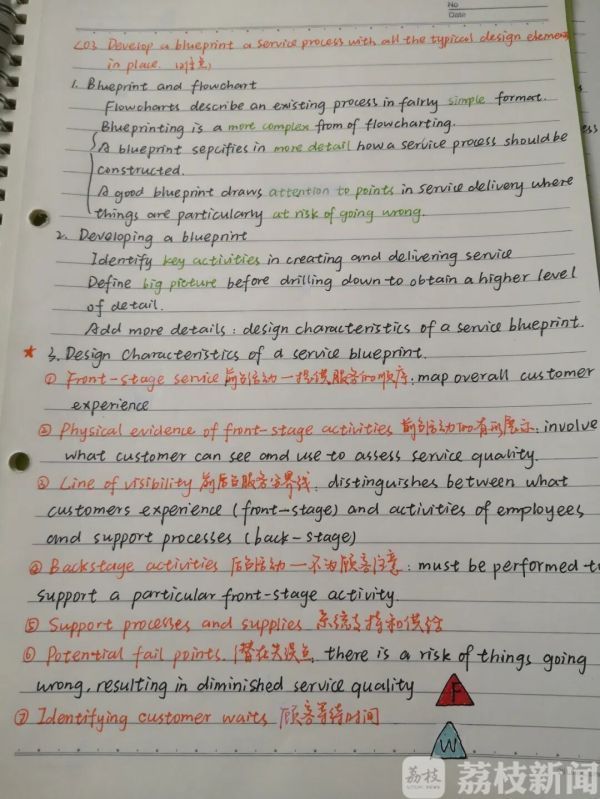 No
Date
L03 Develop a blueprint a service process with all the typical design elemen
in place. (注意)
1. Blueprint and flowchart
Flowcharts describe an existing process in fairly simple format.
Blueprinting is a more complex from of flowcharting.
A blueprint sepcifies in more detail how a service process should be
constructed.
A good blueprint draws attention to points in service delivery where
things are particularly at risk of going wrong.
2. Developing a blueprint
Identify key activities in creating and delivering service
Define big picture before drilling down to obtain a higher level
of detail.
Add more details : design characteristics of a service blueprint.
★ 3. Design characteristics of a service blueprint.
① Front-stage service 前台活动—提供服务的顺序: map overall customer
experience
② Physical evidence of front-stage activities 前台活动的有形展示: involve
what customer can see and use to assess service quality.
③ Line of visibility 前后台服务分界线: distinguishes between what
customers experience (front-stage) and activities of employees
and support processes (back-stage)
④ Backstage activities 后台活动—不为顾客注意: must be performed to
support a particular front-stage activity.
⑤ Support processes and supplies 系统支持和供给
⑥ Potential fail points. 潜在失误点, there is a risk of things going
wrong, resulting in diminished service quality F
⑦ Identifying customer waits 顾客等待时间
W
荔枝 荔枝新闻